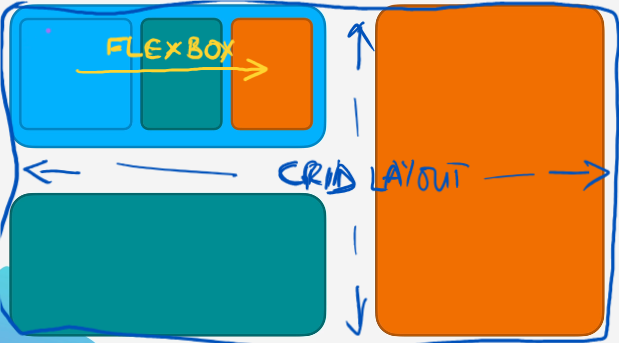 FLEXBOX
GRID LAYOUT